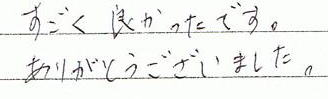 すごく良かったです。
ありがとうございました。